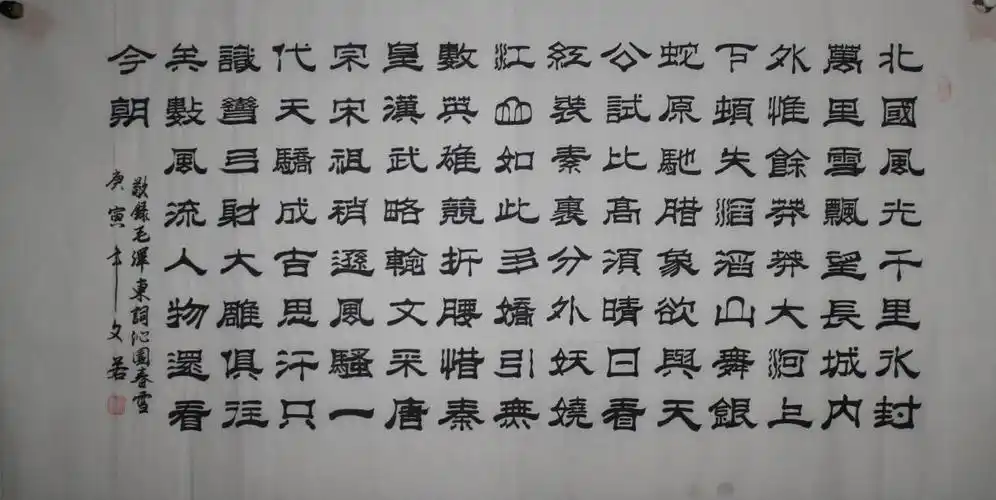 北國風光千里氷封
萬里雪飄望長城內
外惟餘莽莽大河上
下頓失滔滔山舞銀
蛇原馳腊象欲與天
公試比高須晴日看
紅裝素裹分外妖嬈
江山如此多嬌引無
數英雄競折腰惜秦
皇漢武略輸文采唐
宗宋祖稍遜風騷一
代天驕成吉思汗只
識彎弓射大雕俱往
矣數風流人物還看
今朝
敬錄毛澤東詞沁園春雪
庚寅年文若